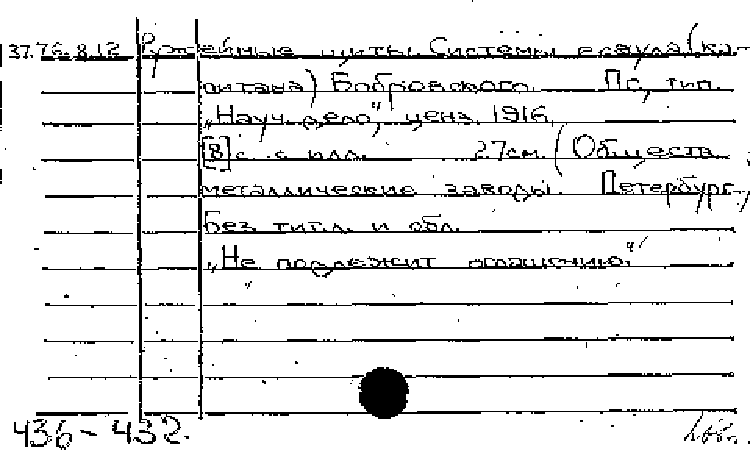 37.76.8.12 Ружейные щиты. Системы есаула (ка-
питана) Бобровского. Пг., тип.
„Науч. дело", ценз. 1916.
[8] с. с илл. 27 см. (Обществ.
металлические заводы. Петербург.)
Без тит. л. и обл.
„Не подлежит оглашению."
436-432.